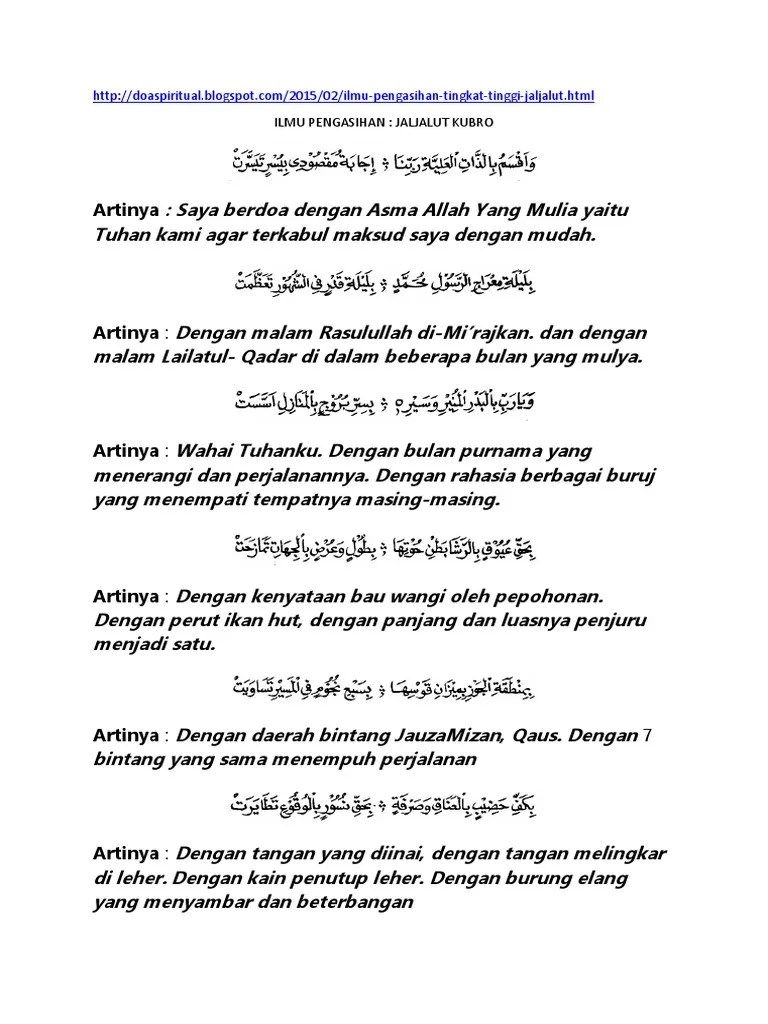 http://doaspiritual.blogspot.com/2015/02/ilmu-pengasihan-tingkat-tinggi-jaljalut.html
ILMU PENGASIHAN : JALJALUT KUBRO
وَاَقْسَمُ بِالذَّاتِ الْعَلِيَّةِ رَبِّنَا ؞ اِجَابَةُ مَقْصُوْدِى بِيُسْرٍ تَيَسَّرَتْ
Artinya : Saya berdoa dengan Asma Allah Yang Mulia yaitu
Tuhan kami agar terkabul maksud saya dengan mudah.
بِلَيْلَةِ مِعْرَاجِ الرَّسُوْلِ مُحَمَّدٍ ؞ بِلَيْلَةِ قَدْرٍ فِى الشُّهُوْرِ تَعَظَّمَتْ
Artinya : Dengan malam Rasulullah di-Mi’rajkan. dan dengan
malam Lailatul- Qadar di dalam beberapa bulan yang mulya.
وَيَارَبِّ بِالْبَدْرِ الْمُنِيْرِ وَسَيْرِهِ ؞ بِسِرِّ بُرُوْجٍ بِالْمَنَازِلِ اَسَّسَتْ
Artinya : Wahai Tuhanku. Dengan bulan purnama yang
menerangi dan perjalanannya. Dengan rahasia berbagai buruj
yang menempati tempatnya masing-masing.
بِحَقِّ عَيُوْقٍ بِالرَّشَا بَطْنِ حُوْتِهَا ؞ بِطُوْلٍ وَعَرْضٍ بِالْجِهَاتِ تَمَازَجَتْ
Artinya : Dengan kenyataan bau wangi oleh pepohonan.
Dengan perut ikan hut, dengan panjang dan luasnya penjuru
menjadi satu.
بِمِنْطَقَةِ الْجَوْزِ بِمِيْزَانِ قَوْسِهَا ؞ بِسَبْعِ نُجُوْمٍ فِى الْمَسِيْرِ تَسَاوَيَتْ
Artinya : Dengan daerah bintang JauzaMizan, Qaus. Dengan 7
bintang yang sama menempuh perjalanan
بِكَفٍّ خَضِيْبٍ بِالْعَنَاقِ وَصَرْفَةٍ ؞ بِحَقِّ نُسُوْرٍ بِالْوُقُوْعِ تَطَايَرَتْ
Artinya : Dengan tangan yang diinai, dengan tangan melingkar
di leher. Dengan kain penutup leher. Dengan burung elang
yang menyambar dan beterbangan